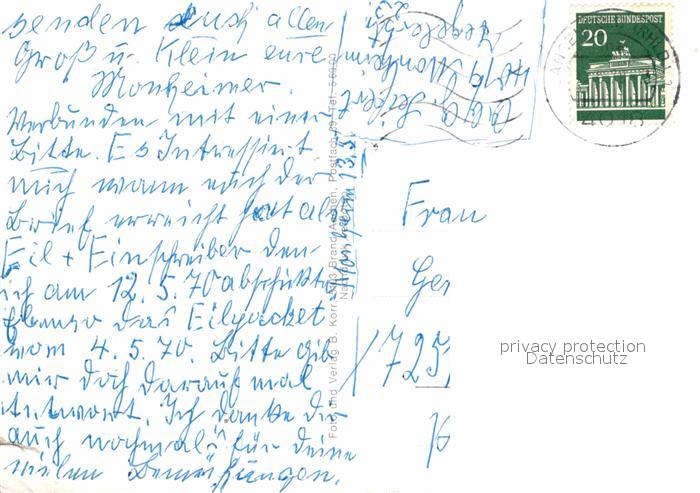 senden Euch allen
Groß u. Klein eure
Monheimer.
Verbunden mit einer
Bitte. Es Intressiert
mich wann euch der
Brief erreicht hat als
Eil + Einschreiber den
ich am 12.5.70 abschikte
Ebenso das Eilpacket
vom 4.5.70. Bitte gib
mir doch darauf mal
Antwort. Ich danke dir
auch nochmals für deine
vielen Bemühungen.
Monheim 13.5.
Foto und Verlag B. Korr 5103 Brand/Aachen, Postfach 09 Tel. 5 69 90
DEUTSCHE BUNDESPOST
20
4018
Frau
Ge
725
privacy protection
Datenschutz